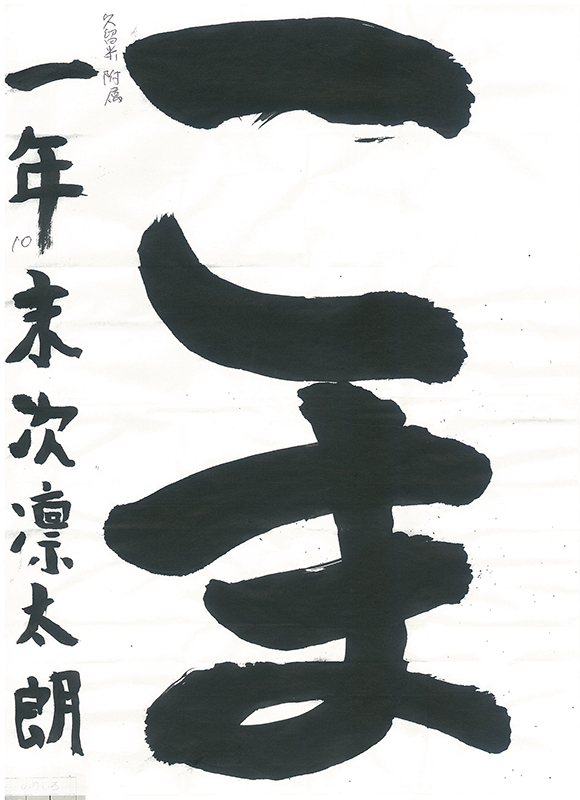 こま
久留米附属
一年末次凛太朗
10